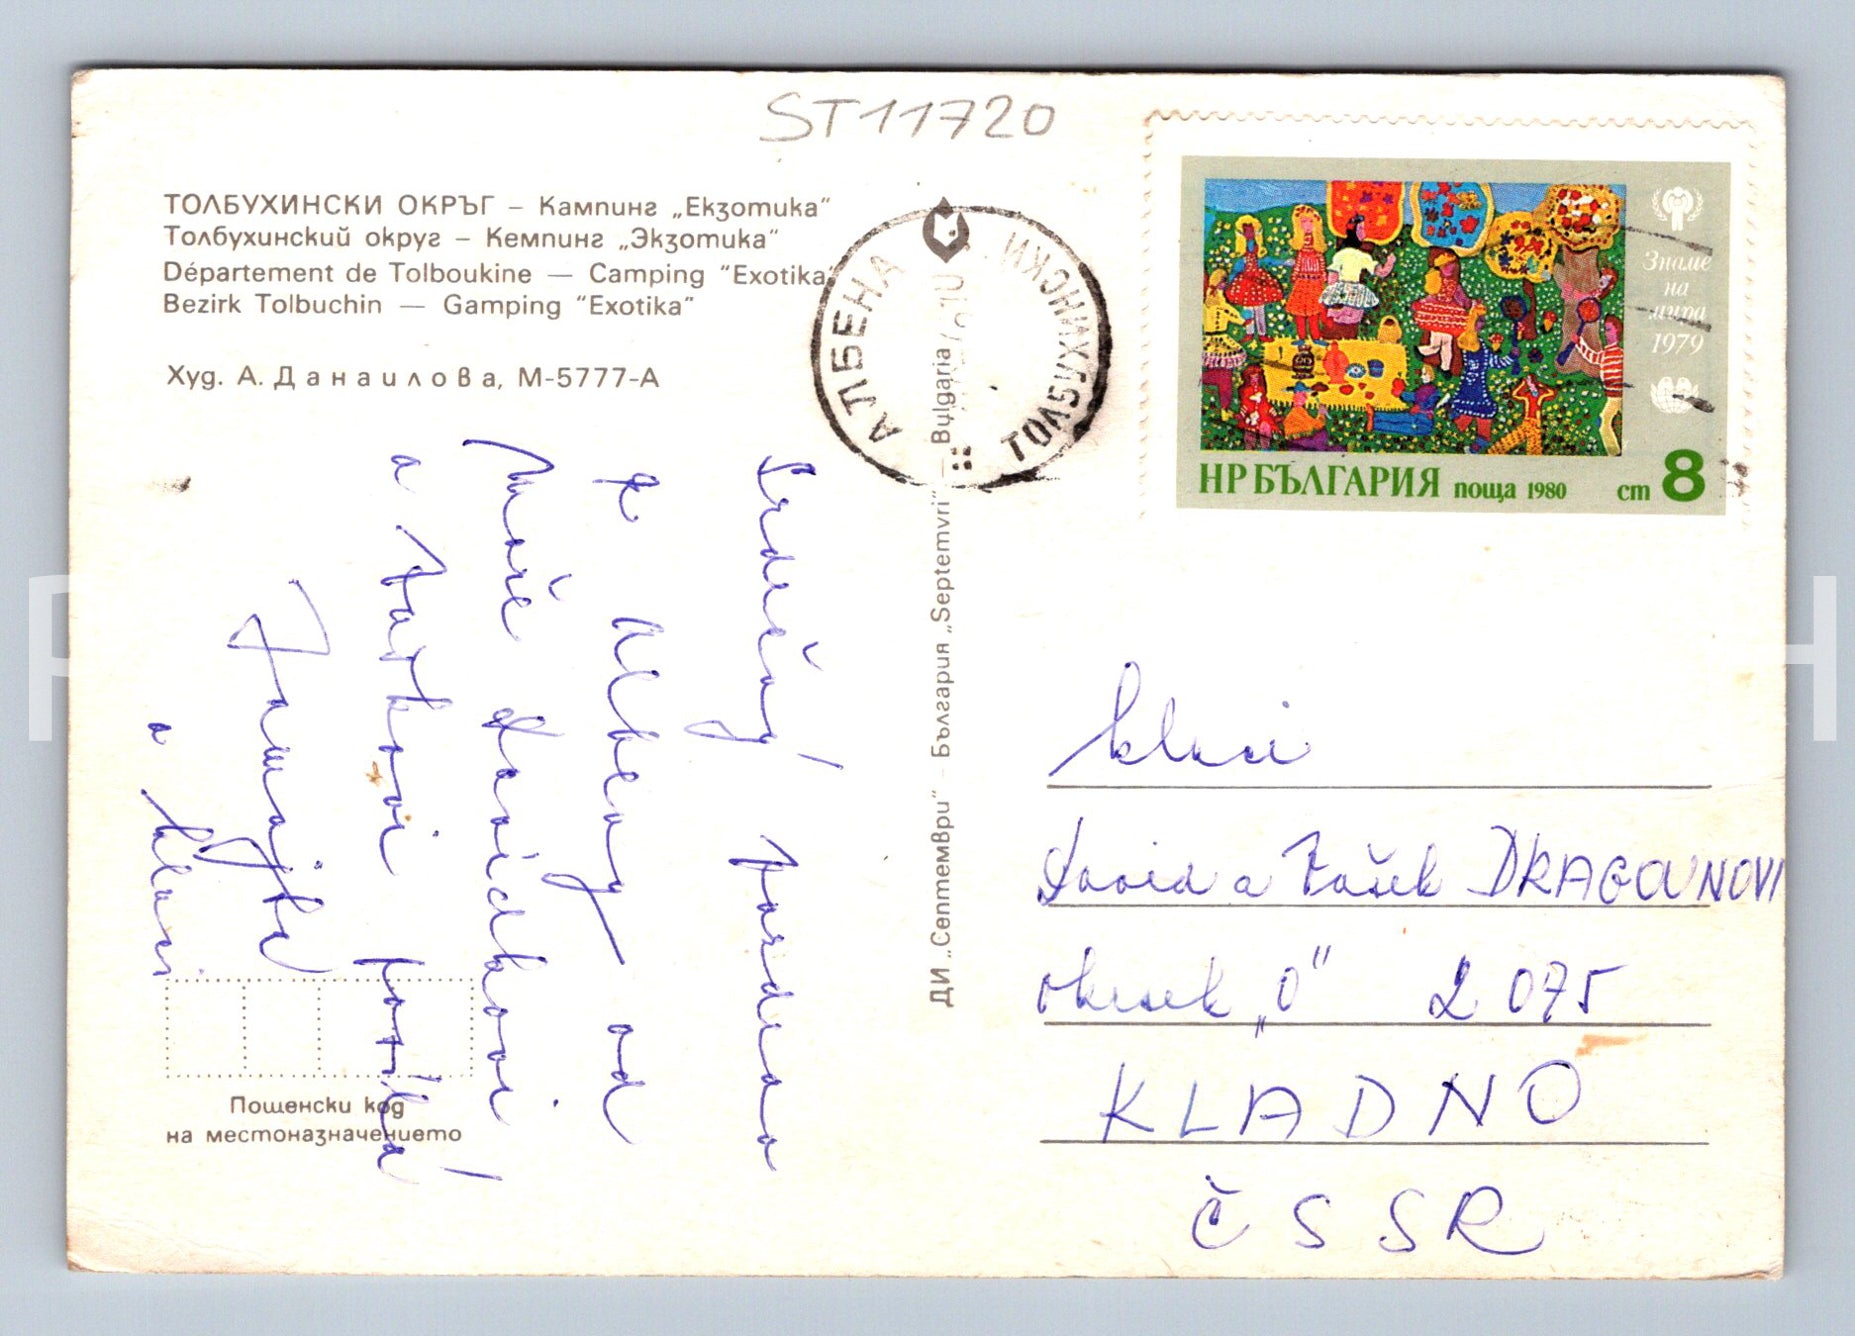 ST11720
ТОЛБУХИНСКИ ОКРЪГ – Кампинг „Екзотика”
Толбухинский округ – Кемпинг „Экзотика”
Département de Tolboukine — Camping “Exotika”
Bezirk Tolbuchin — Gamping “Exotika”
Худ. А. Данаилова, М-5777-А
АЛБЕНА
ТОЛБУХИНСКИ
Знаме
на
мира
1979
НР БЪЛГАРИЯ поща 1980 ст 8
ДИ „Септември” – България „Septemvri” – Bulgaria
Srdečný pozdrav
z Albeny od
Moře Davídkovi
a Vaškovi posílá
a
Kluci
David a Vašek DRAGOUNOVI
okrsek „0” 2 075
KLADNO
ČSSR
Пощенски код
на местоназначението